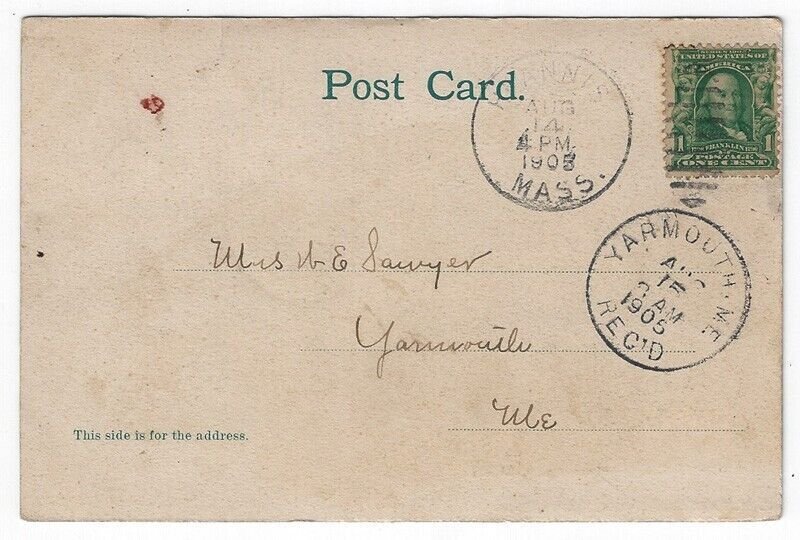 Post Card.
HYANNIS
AUG
14
4 PM.
1905
MASS.
SERIES 1902
UNITED STATES OF
AMERICA
1 FRANKLIN 1
POSTAGE
ONE CENT
YARMOUTH. ME
AUG
15
AM
1905
REC'D
Mrs W E Sawyer
Yarmouth
Me
This side is for the address.